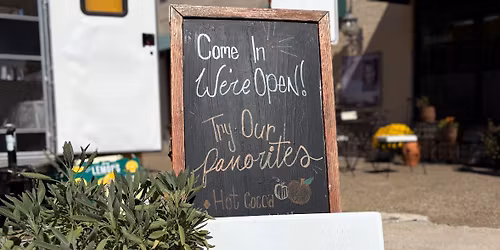 Come In
We're Open!
Try Our
favorites
Hot Cocoa